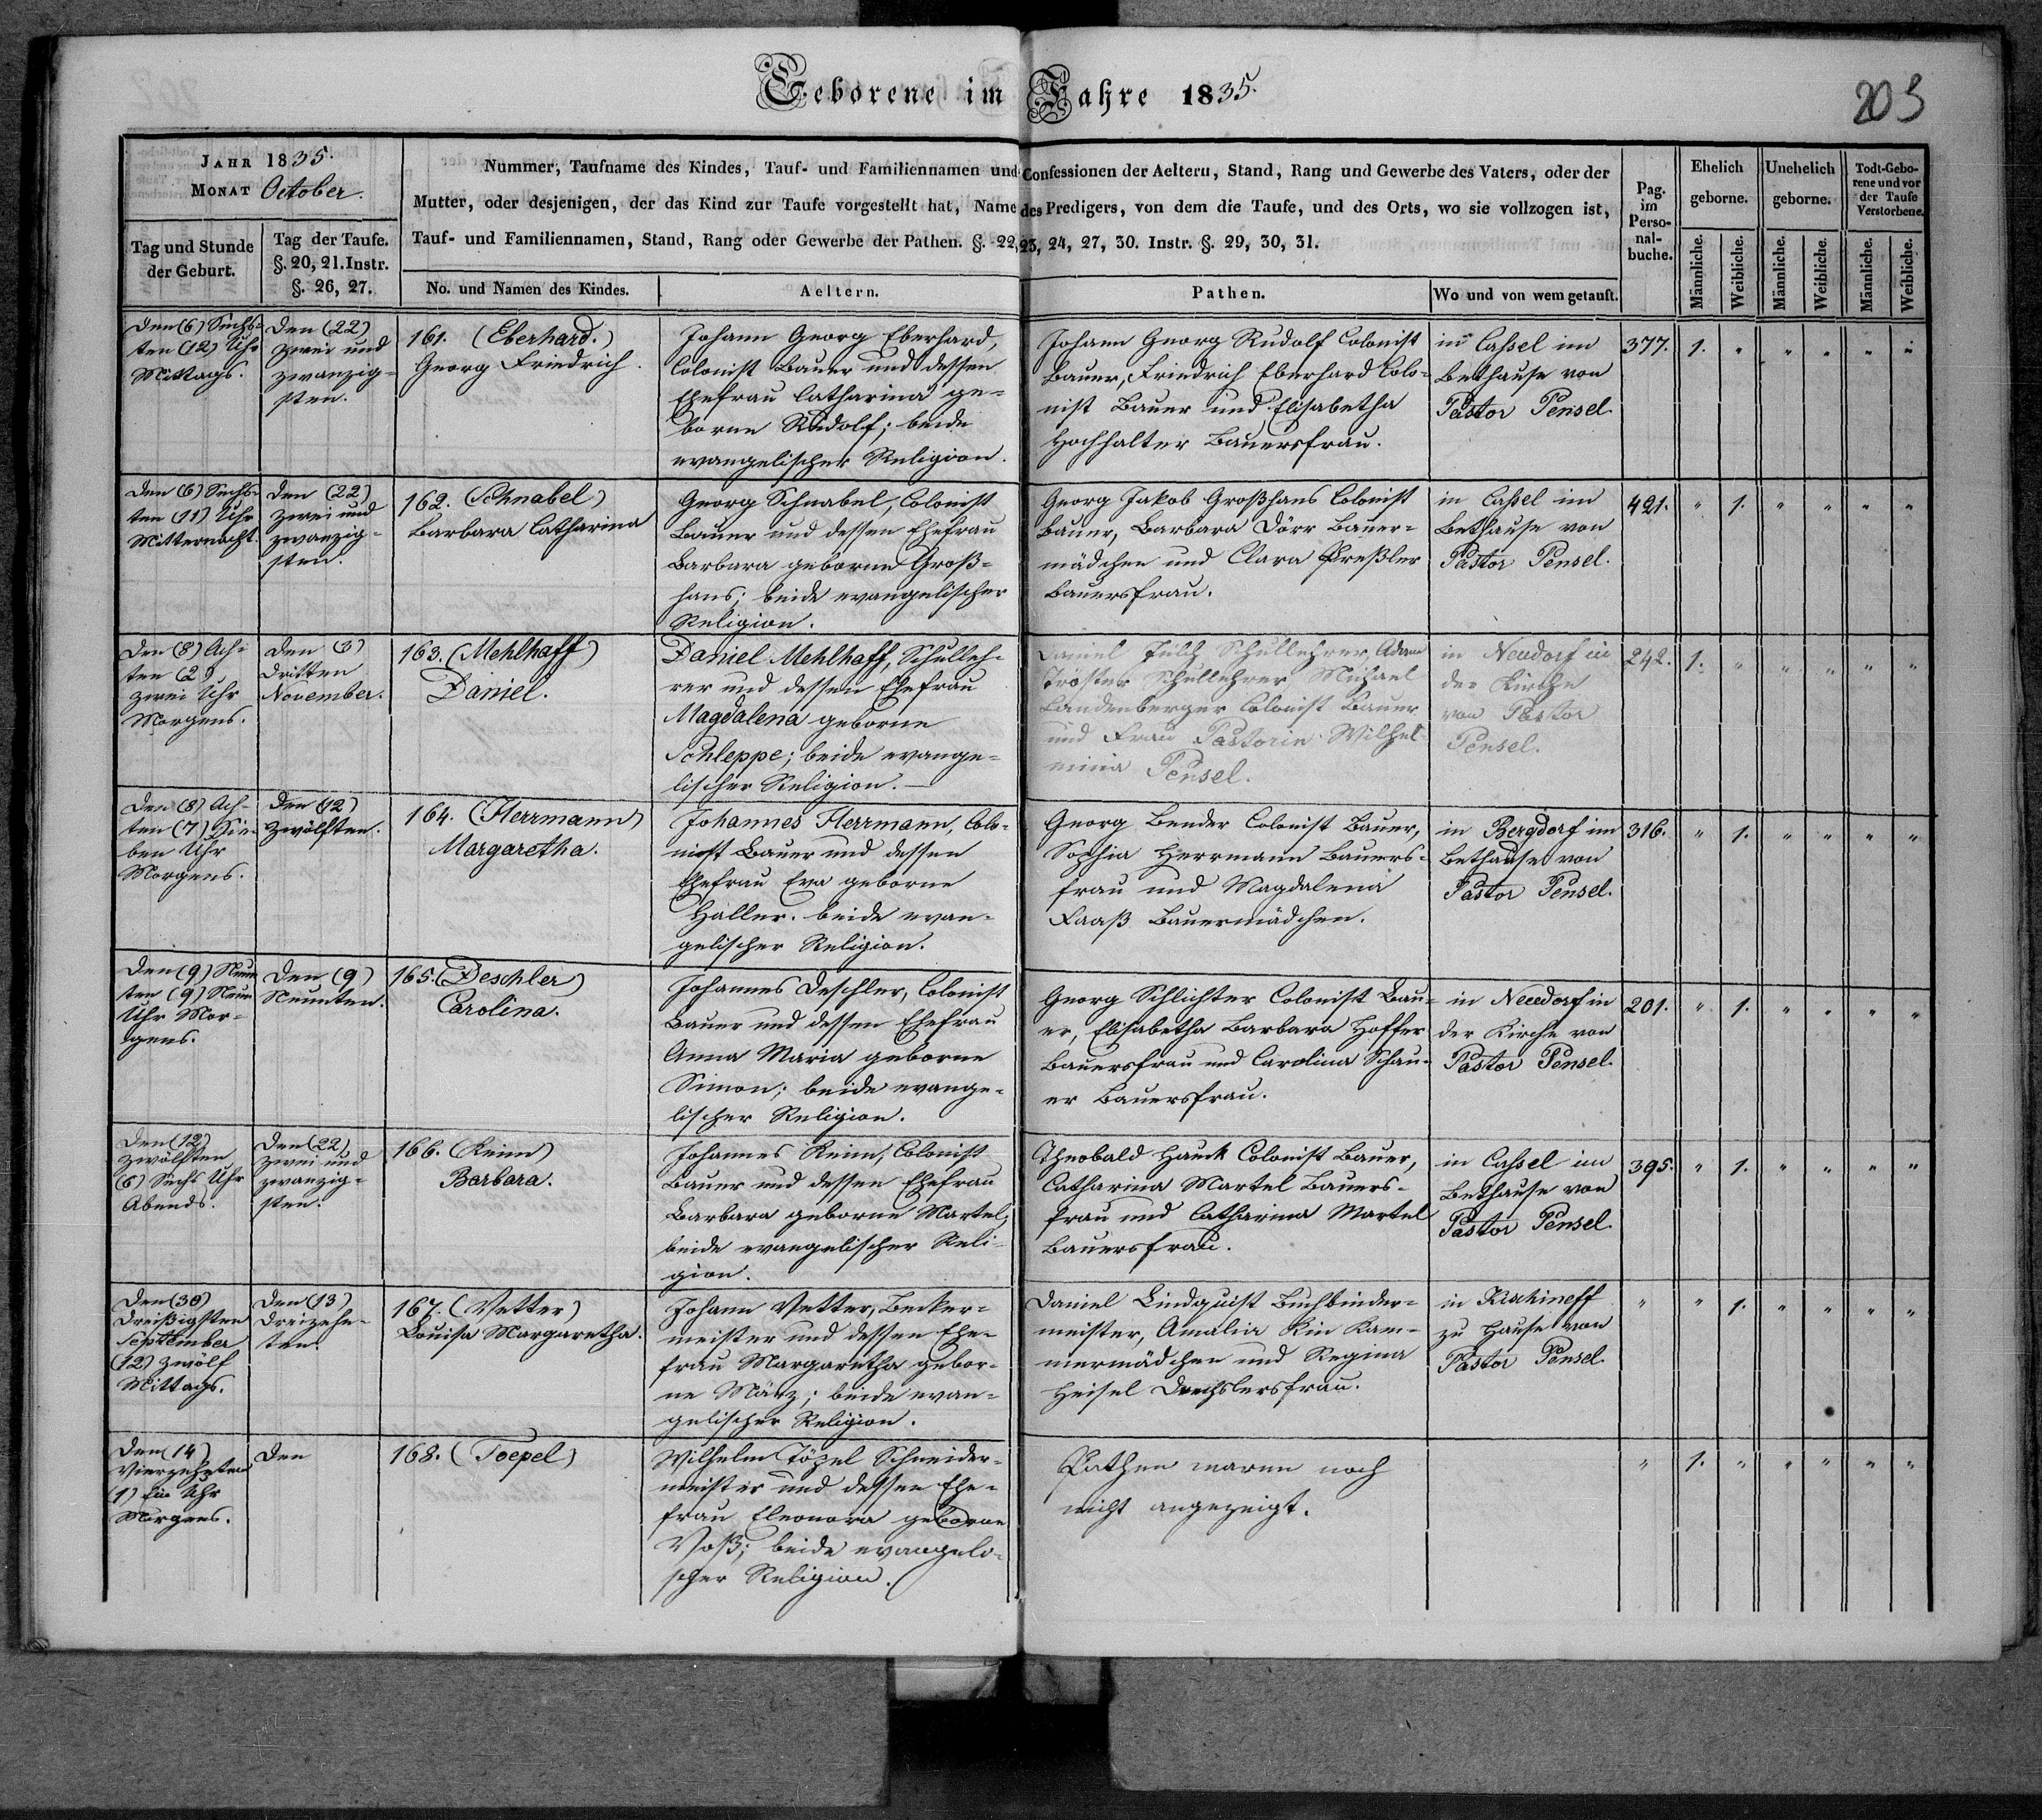 Geborene im Jahre 1835.
203
JAHR 1835.
MONAT October.
Nummer, Taufname des Kindes, Tauf- und Familiennamen und Confessionen der Aeltern, Stand, Rang und Gewerbe des Vaters, oder der
Mutter, oder desjenigen, der das Kind zur Taufe vorgestellt hat, Name des Predigers, von dem die Taufe, und des Orts, wo sie vollzogen ist,
Tauf- und Familiennamen, Stand, Rang oder Gewerbe der Pathen. §. 22, 23, 24, 27, 30. Instr. §. 29, 30, 31.
Tag und Stunde
der Geburt.
Tag der Taufe.
§. 20, 21. Instr.
§. 26, 27.
No. und Namen des Kindes.
Aeltern.
Pathen.
Wo und von wem getauft.
Pag.
im
Perso-
nal-
buche.
Ehelich
geborne.
Unehelich
geborne.
Todt-Gebo-
rene und vor
der Taufe
Verstorbene.
Männliche.
Weibliche.
Männliche.
Weibliche.
Männliche.
Weibliche.
Den (6) Sechs-
ten (12) Uhr
Mittags.
Den (22)
zwei und
zwanzig-
sten.
161. (Eberhard.)
Georg Friedrich.
Johann Georg Eberhard,
Colonist Bauer und dessen
Ehefrau Catharina ge-
borne Rudolf; beide
evangelischer Religion.
Johann Georg Rudolf Colonist
Bauer, Friedrich Eberhard Colo-
nist Bauer und Elisabetha
Hochhalter Bauersfrau.
in Cassel im
Bethause von
Pastor Pensel.
377. 1. " " " " "
Den (6) Sechs-
ten (11) Uhr
Mitternacht.
Den (22)
zwei und
zwanzig-
sten.
162. (Schnabel)
Barbara Catharina
Georg Schnabel, Colonist
Bauer und dessen Ehefrau
Barbara geborne Groß-
hans; beide evangelischer
Religion.
Georg Jakob Großhans Colonist
Bauer, Barbara Dörr Bauer-
mädchen und Clara Preßler
Bauersfrau.
in Cassel im
Bethause von
Pastor Pensel.
421. " 1. " " " "
Den (8) Ach-
ten (2)
zwei Uhr
Morgens.
Den (3)
Dritten
November.
163. (Mehlhaff)
Daniel.
Daniel Mehlhaff, Schulleh-
rer und dessen Ehefrau
Magdalena geborne
Schleppe; beide evange-
lischer Religion.
Daniel Schullehrer, Adam
Tröster Schullehrer Michael
Landenberger Colonist Bauer
und Frau Pastorin Wilhel-
mina Pensel.
in Neudorf in
der Kirche
von Pastor
Pensel.
242. 1. " " " " "
Den (8) Ach-
ten (7) Sie-
ben Uhr
Morgens.
Den (12)
Zwölften.
164. (Herrmann)
Margaretha.
Johannes Herrmann, Colo-
nist Bauer und dessen
Ehefrau Eva geborne
Haller. beide evan-
gelischer Religion.
Georg Bender Colonist Bauer,
Sophia Herrmann Bauers-
frau und Magdalena
Faaß Bauermädchen.
in Bergdorf im
Bethause von
Pastor Pensel.
316. " 1. " " " "
Den (9) Neun-
ten (9) Neun
Uhr Mor-
gens.
Den (9)
Neunten.
165. (Deschler)
Carolina.
Johannes Deschler, Colonist
Bauer und dessen Ehefrau
Anna Maria geborne
Simon; beide evange-
lischer Religion.
Georg Schlichter Colonist Bau-
er, Elisabetha Barbara Hoffer
Bauersfrau und Carolina Schau-
er Bauersfrau.
in Neudorf in
der Kirche von
Pastor Pensel.
201. " 1. " " " "
Den (12)
zwölften
(6) Sechs Uhr
Abends.
Den (22)
zwei und
zwanzig-
sten.
166. (Keim)
Barbara.
Johannes Keim, Colonist
Bauer und dessen Ehefrau
Barbara geborne Martel;
beide evangelischer Reli-
gion.
Theobald Hauck Colonist Bauer,
Catharina Martel Bauers-
frau und Catharina Martel
Bauersfrau.
in Cassel im
Bethause von
Pastor Pensel
395. " 1. " " " "
Den (30)
Dreißigsten
September
(12) zwölf
Mittags.
Den (13)
Dreizehn-
ten.
167. (Vetter)
Louisa Margaretha.
Johann Vetter, Becker-
meister und dessen Ehe-
frau Margaretha gebor-
ne März; beide evan-
gelischer Religion.
Daniel Lindquist Buchbinder-
meister, Amalia Kin Kam-
mermädchen und Regina
Heisel Drechslersfrau.
in Kischineff
zu Hause von
Pastor Pensel.
" " 1. " " " "
Den (14)
Vierzehnten
(1) Ein Uhr
Morgens.
Den
168. (Toepel)
Wilhelm Töpel Schneider-
meister und dessen Ehe-
frau Eleonora geborne
Voß; beide evangeli-
scher Religion.
Pathen waren noch
nicht angezeigt.
" 1. " " " " "